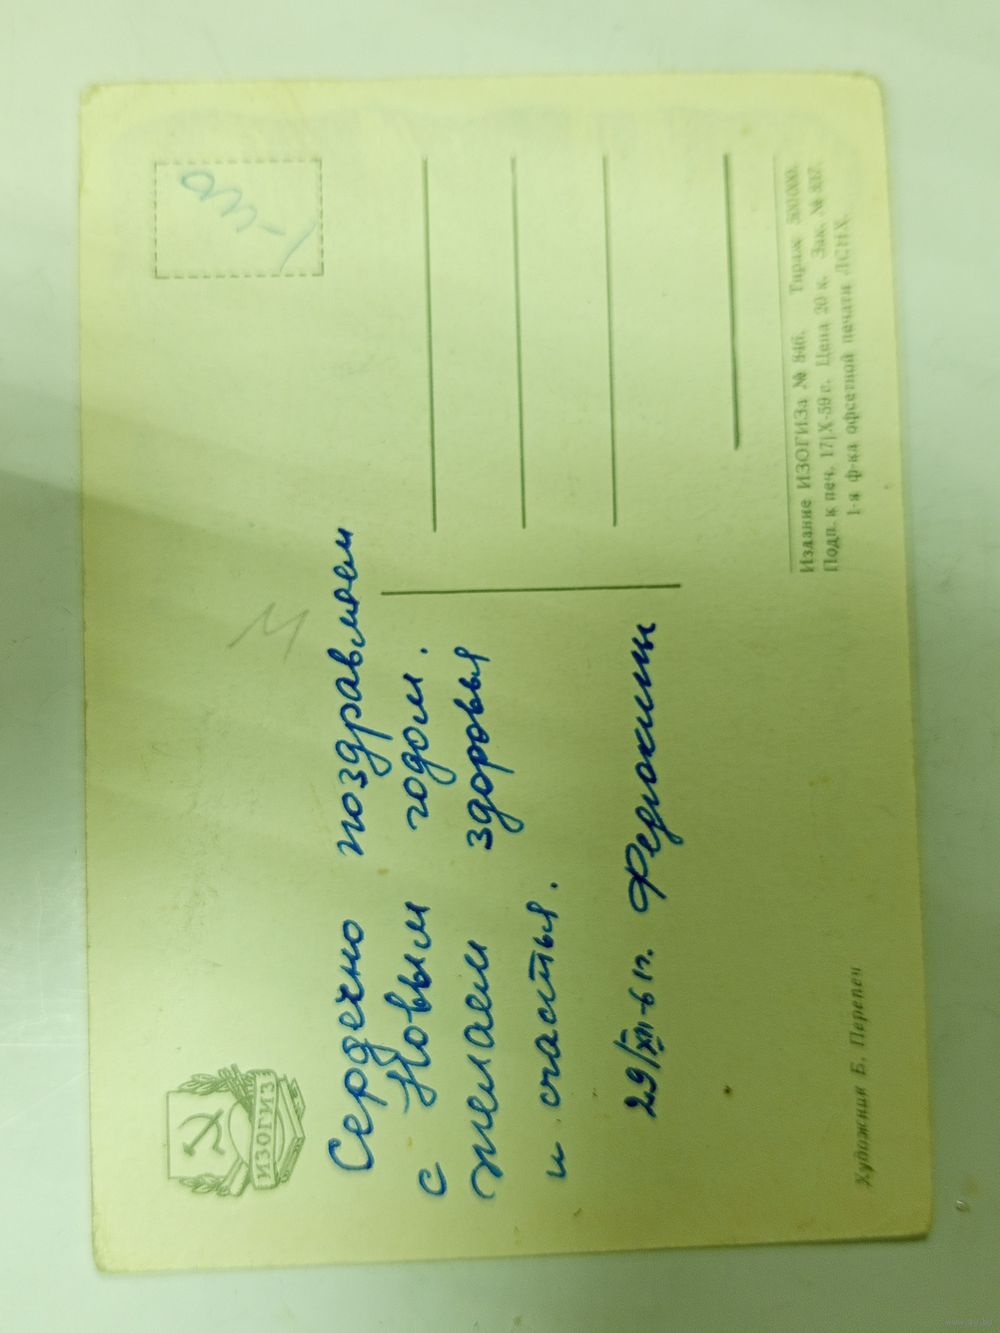 ИЗОГИЗ
Сердечно поздравляем
с Новым годом.
желаем здоровья
и счастья.
29/XII-61г. Федюкины
Художник Б. Перепеч
Издание ИЗОГИЗа № 846. Тираж 500 000.
Подп. к печ. 17/X-59 г. Цена 20 к. Зак. №
1-я ф-ка офсетной печати ЛСНХ.